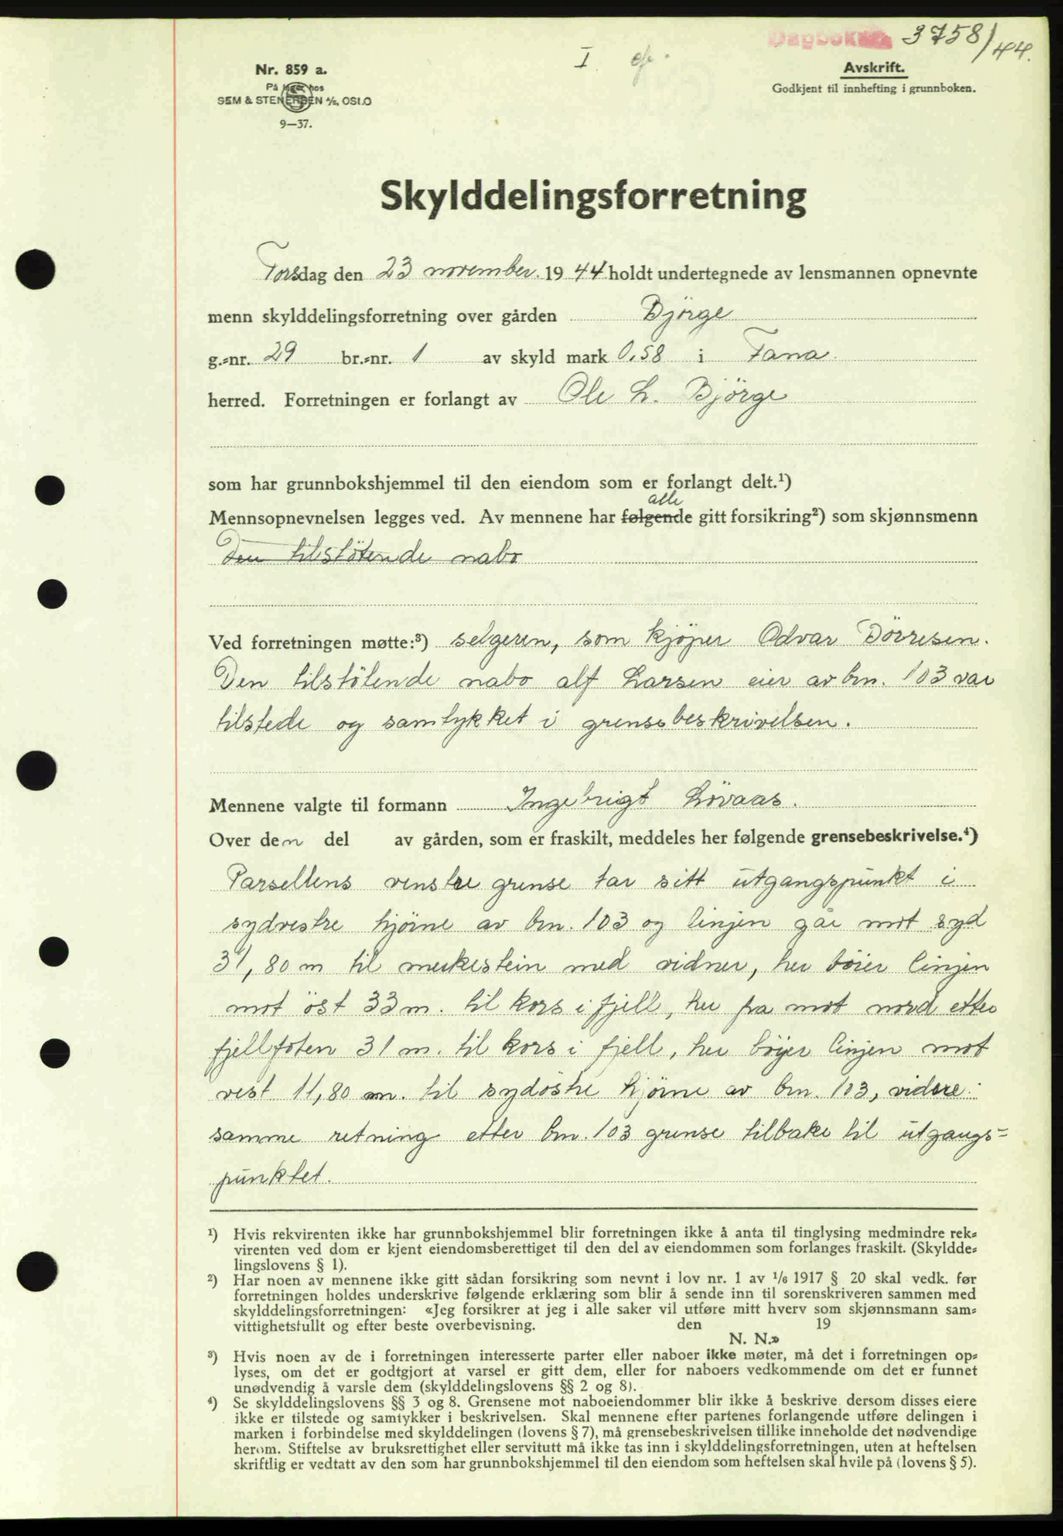 Dagbok 3758/44.
I
Nr. 859 a.
På lager hos
SEM & STENERSEN A/S, OSLO
9—37.
Avskrift.
Godkjent til innhefting i grunnboken.
Skylddelingsforretning
Torsdag den 23 november 1944 holdt undertegnede av lensmannen opnevnte
menn skylddelingsforretning over gården Björge
g.=nr. 29 br.=nr. 1 av skyld mark 0,58 i Fana
herred. Forretningen er forlangt av Ole L. Björge
som har grunnbokshjemmel til den eiendom som er forlangt delt.¹)
alle
Mennsopnevnelsen legges ved. Av mennene har følgende gitt forsikring²) som skjønnsmenn
Den tilstötende nabo
Ved forretningen møtte:³) selgeren, som kjöper Odvar Dövresen.
Den tilstötende nabo Alf Larsen eier av brn. 103 var
tilstede og samtykket i grensebeskrivelsen.
Mennene valgte til formann Ingebrigt Lövaas.
Over den del av gården, som er fraskilt, meddeles her følgende grensebeskrivelse.⁴)
Parsellens venstre grense tar sitt utgangspunkt i
sydvestre hjörne av brn. 103 og linjen går mot syd
31,80 m til merkestein med vidner, her böier linjen
mot öst 33 m. til kors i fjell, her fra mot nord etter
fjellfoten 31 m. til kors i fjell, her böyer linjen mot
vest 11,80 m. til sydöstre hjörne av brn. 103, videre
samme retning etter brn. 103 grense tilbake til utgangs=
punktet.
¹) Hvis rekvirenten ikke har grunnbokshjemmel blir forretningen ikke å anta til tinglysing medmindre rek=
virenten ved dom er kjent eiendomsberettiget til den del av eiendommen som forlanges fraskilt. (Skyldde=
lingslovens § 1).
²) Har noen av mennene ikke gitt sådan forsikring som nevnt i lov nr. 1 av 1/6 1917 § 20 skal vedk. før
forretningen holdes underskrive følgende erklæring som blir å sende inn til sorenskriveren sammen med
skylddelingsforretningen: «Jeg forsikrer at jeg i alle saker vil utføre mitt hverv som skjønnsmann sam=
vittighetsfullt og efter beste overbevisning. den 19
N. N.»
³) Hvis noen av de i forretningen interesserte parter eller naboer ikke møter, må det i forretningen op=
lyses, om det er godtgjort at varsel er gitt dem, eller for naboers vedkommende om det er funnet
unødvendig å varsle dem (skylddelingslovens §§ 2 og 8).
⁴) Se skylddelingslovens §§ 3 og 8. Grensene mot naboeiendommer blir ikke å beskrive dersom disses eiere
ikke er tilstede og samtykker i beskrivelsen. Skal mennene efter partenes forlangende utføre delingen i
marken i forbindelse med skylddelingen (lovens § 7), må grensebeskrivelsen tillike inneholde det nødvendige
herom. Stiftelse av bruksrettighet eller servitutt må ikke tas inn i skylddelingsforretningen, uten at heftelsen
skriftlig er vedtatt av den som har grunnbokshjemmel til den eiendom som heftelsen skal hvile på (lovens § 5).